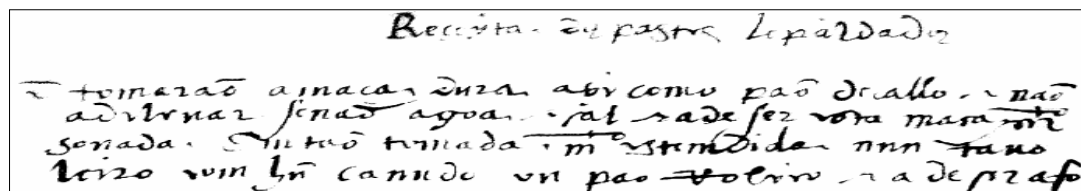 Reçeyta de pasteis lepardados
tomarão a maça dura asi como pão de callo e não
a de levar senão agoa e sal e a de ser esta masa mto
sonada Então tomada mto estemdida nun tavo
leiro com hũ canudo un pao e a de